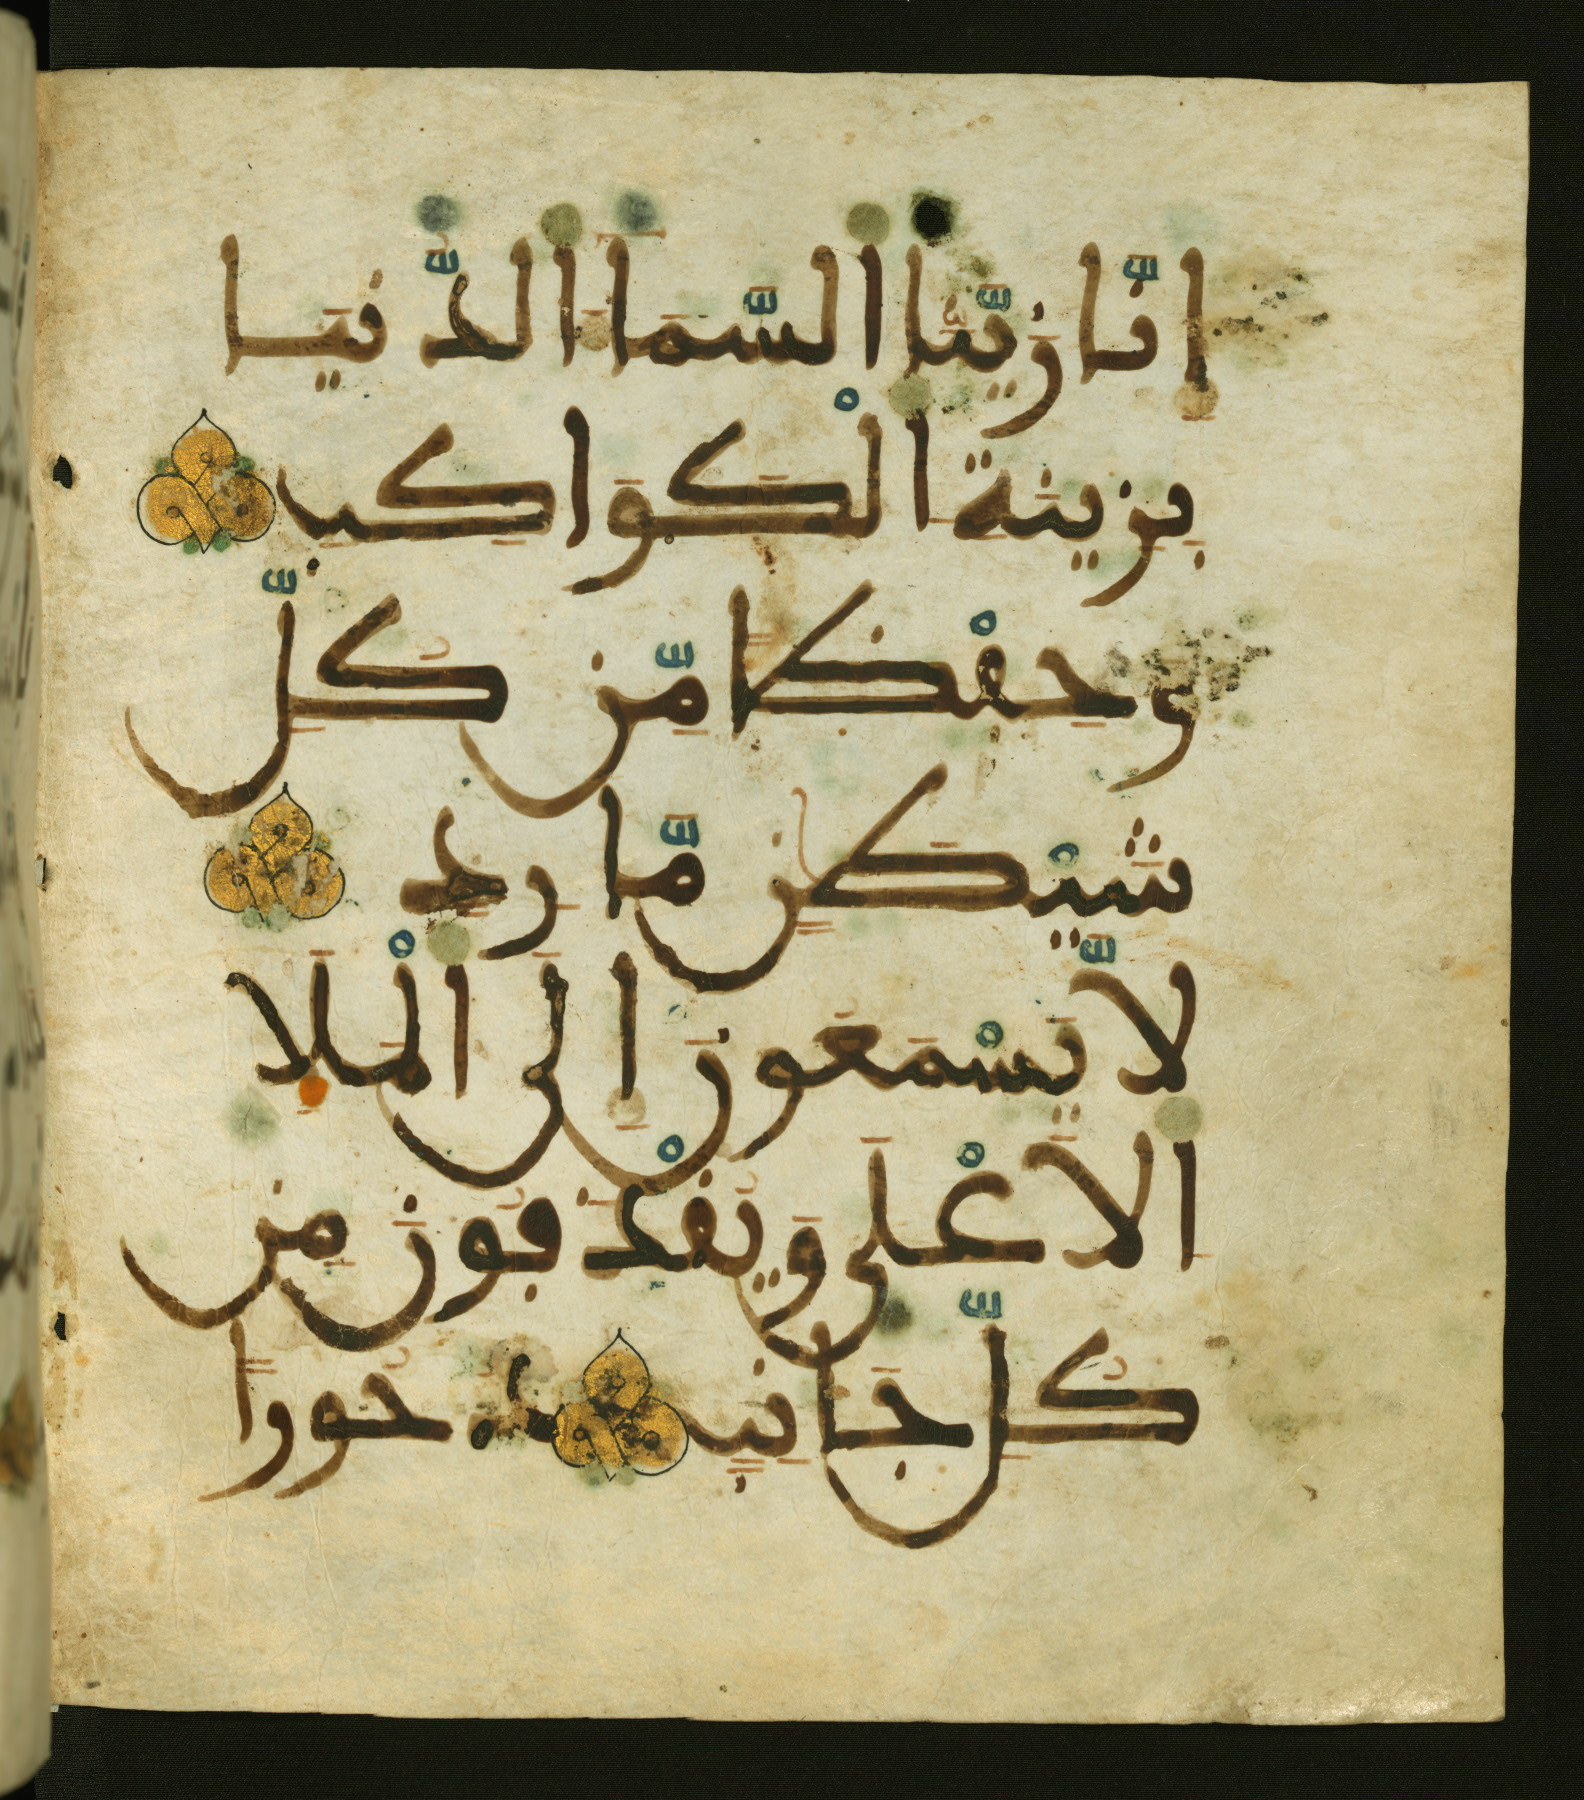 اِنَّا زَيَّنَّا السَّمَآءَ الدُّنْيَا
بِزِينَةِ الْكَوَاكِبِ
وَحِفْظًا مِّن كُلِّ
شَيْطَٰنٍ مَّارِدٍ
لَّا يَسْمَعُونَ إِلَى الْمَلَإِ
الَاعْلَىٰ وَيُقْذَفُونَ مِن
كُلِّ جَانِبٍ دُحُورًا